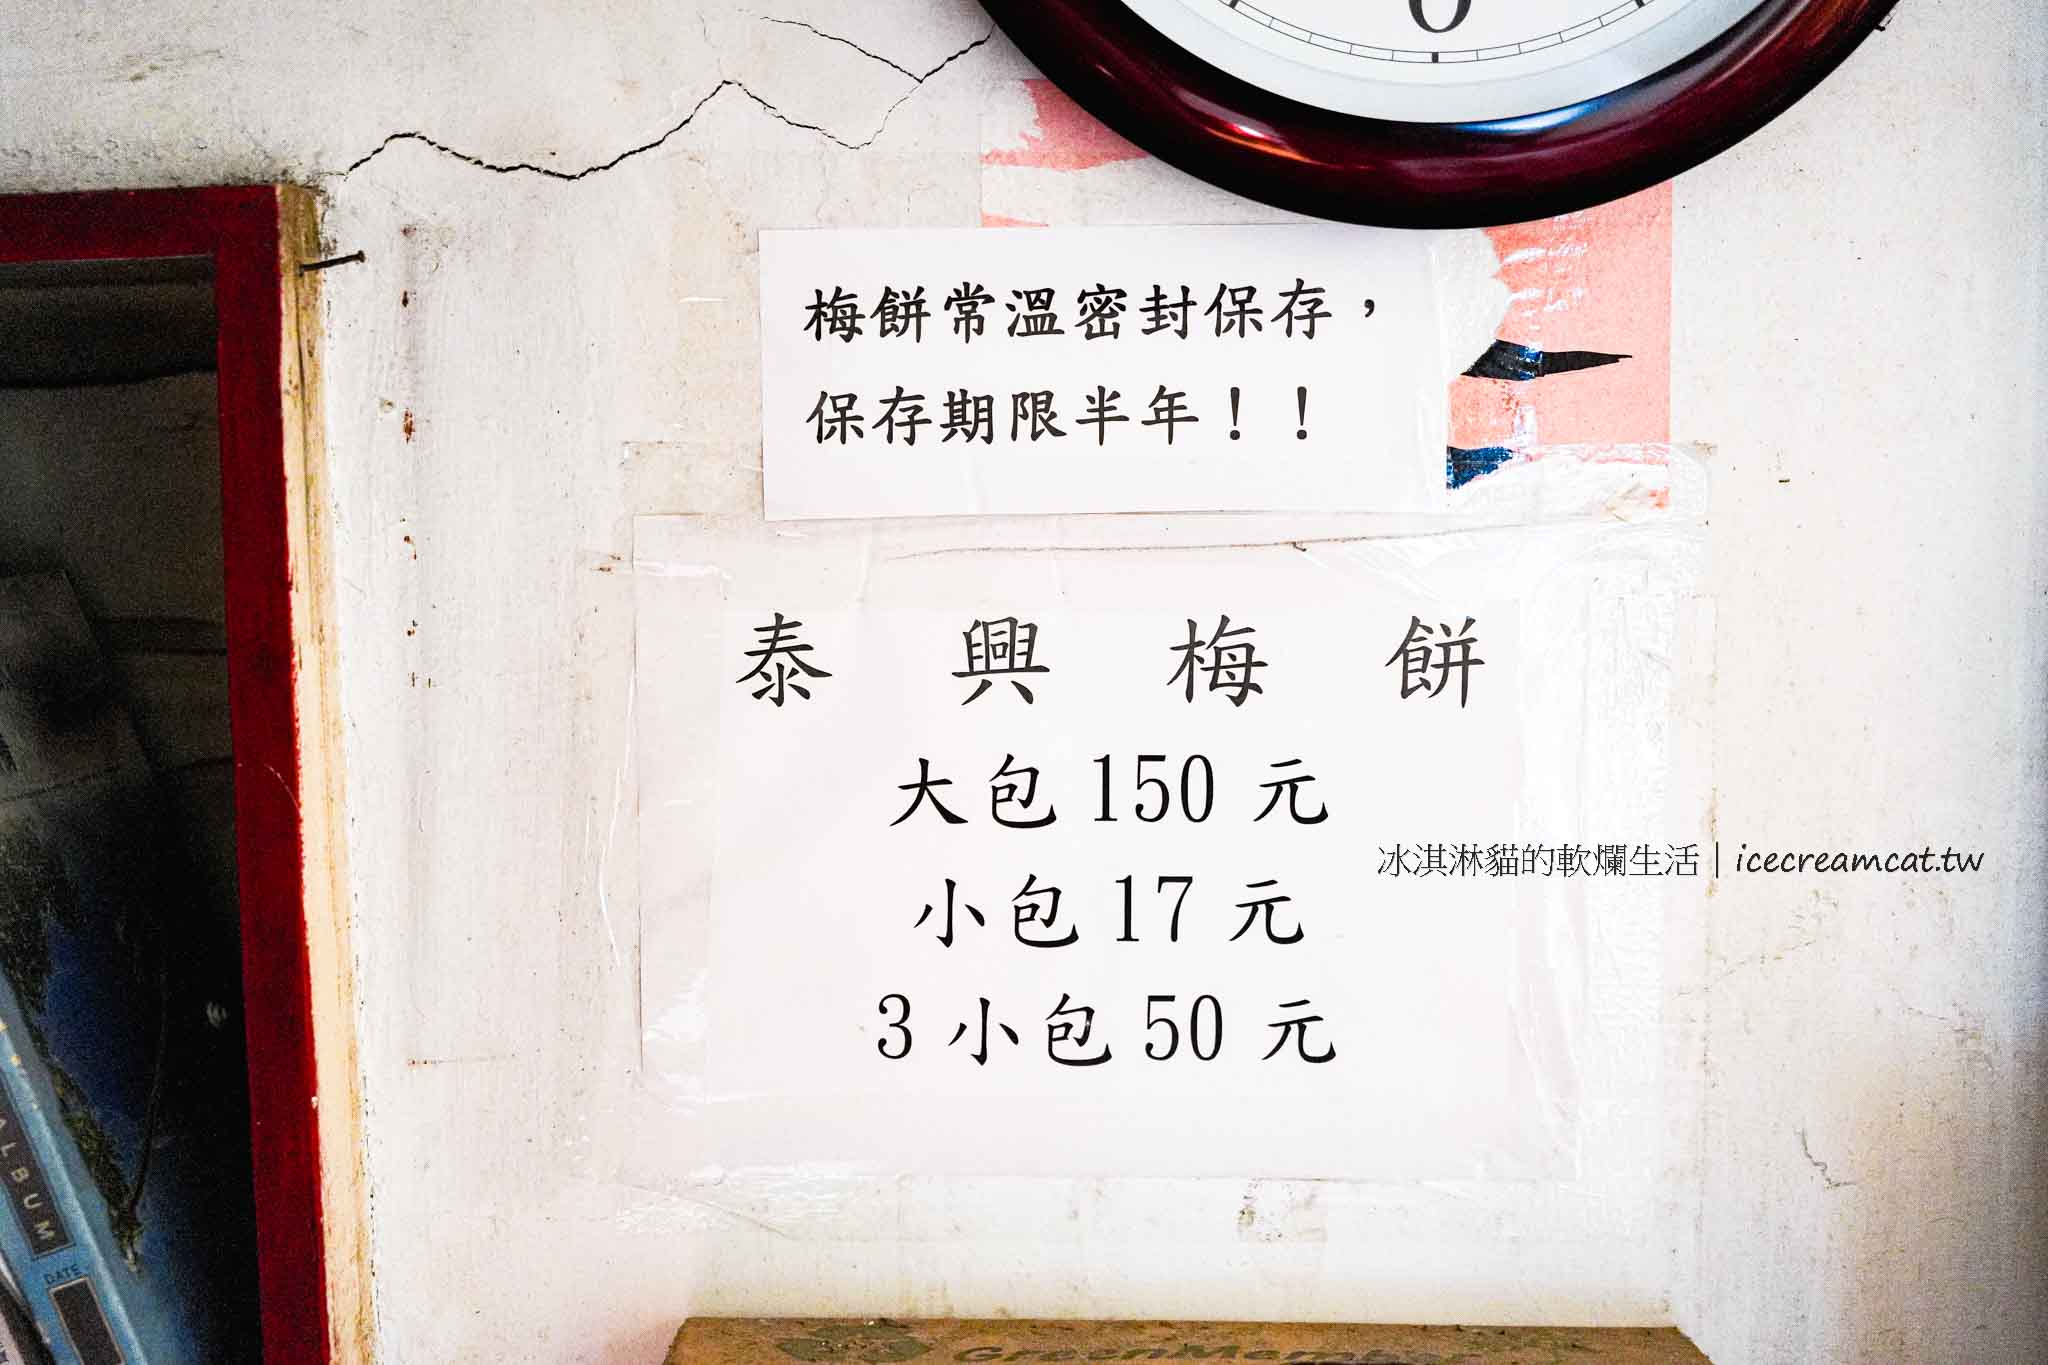 6
梅餅常溫密封保存，
保存期限半年！！
泰興梅餅
大包150元
小包17元
3小包50元
冰淇淋貓的軟爛生活｜icecreamcat.tw
ALBUM
DATE